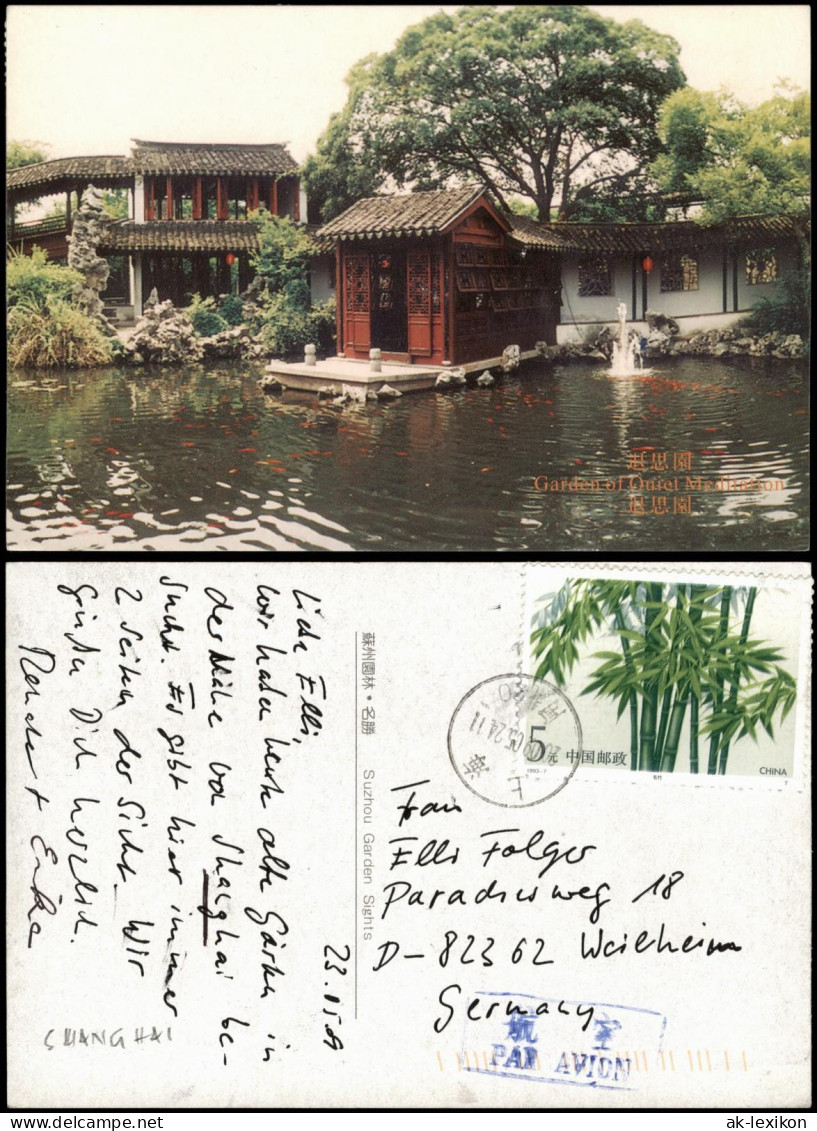 退思園
Garden of Quiet Meditation
退思園
23.05.09
Liebe Elli,
wir haben heute alte Gärten in
der Nähe von Shanghai be-
sucht. Es gibt hier immer
2 Seiten der Sicht. Wir
grüßen Dich herzlich.
Renate + Enka
SHANGHAI
蘇州園林・名勝 Suzhou Garden Sights
5元 中国邮政
1993-7
CHINA
上海
Frau
Elli Folger
Paradiesweg 18
D-82362 Weilheim
Germany
航空
PAR AVION
ak-lexikon